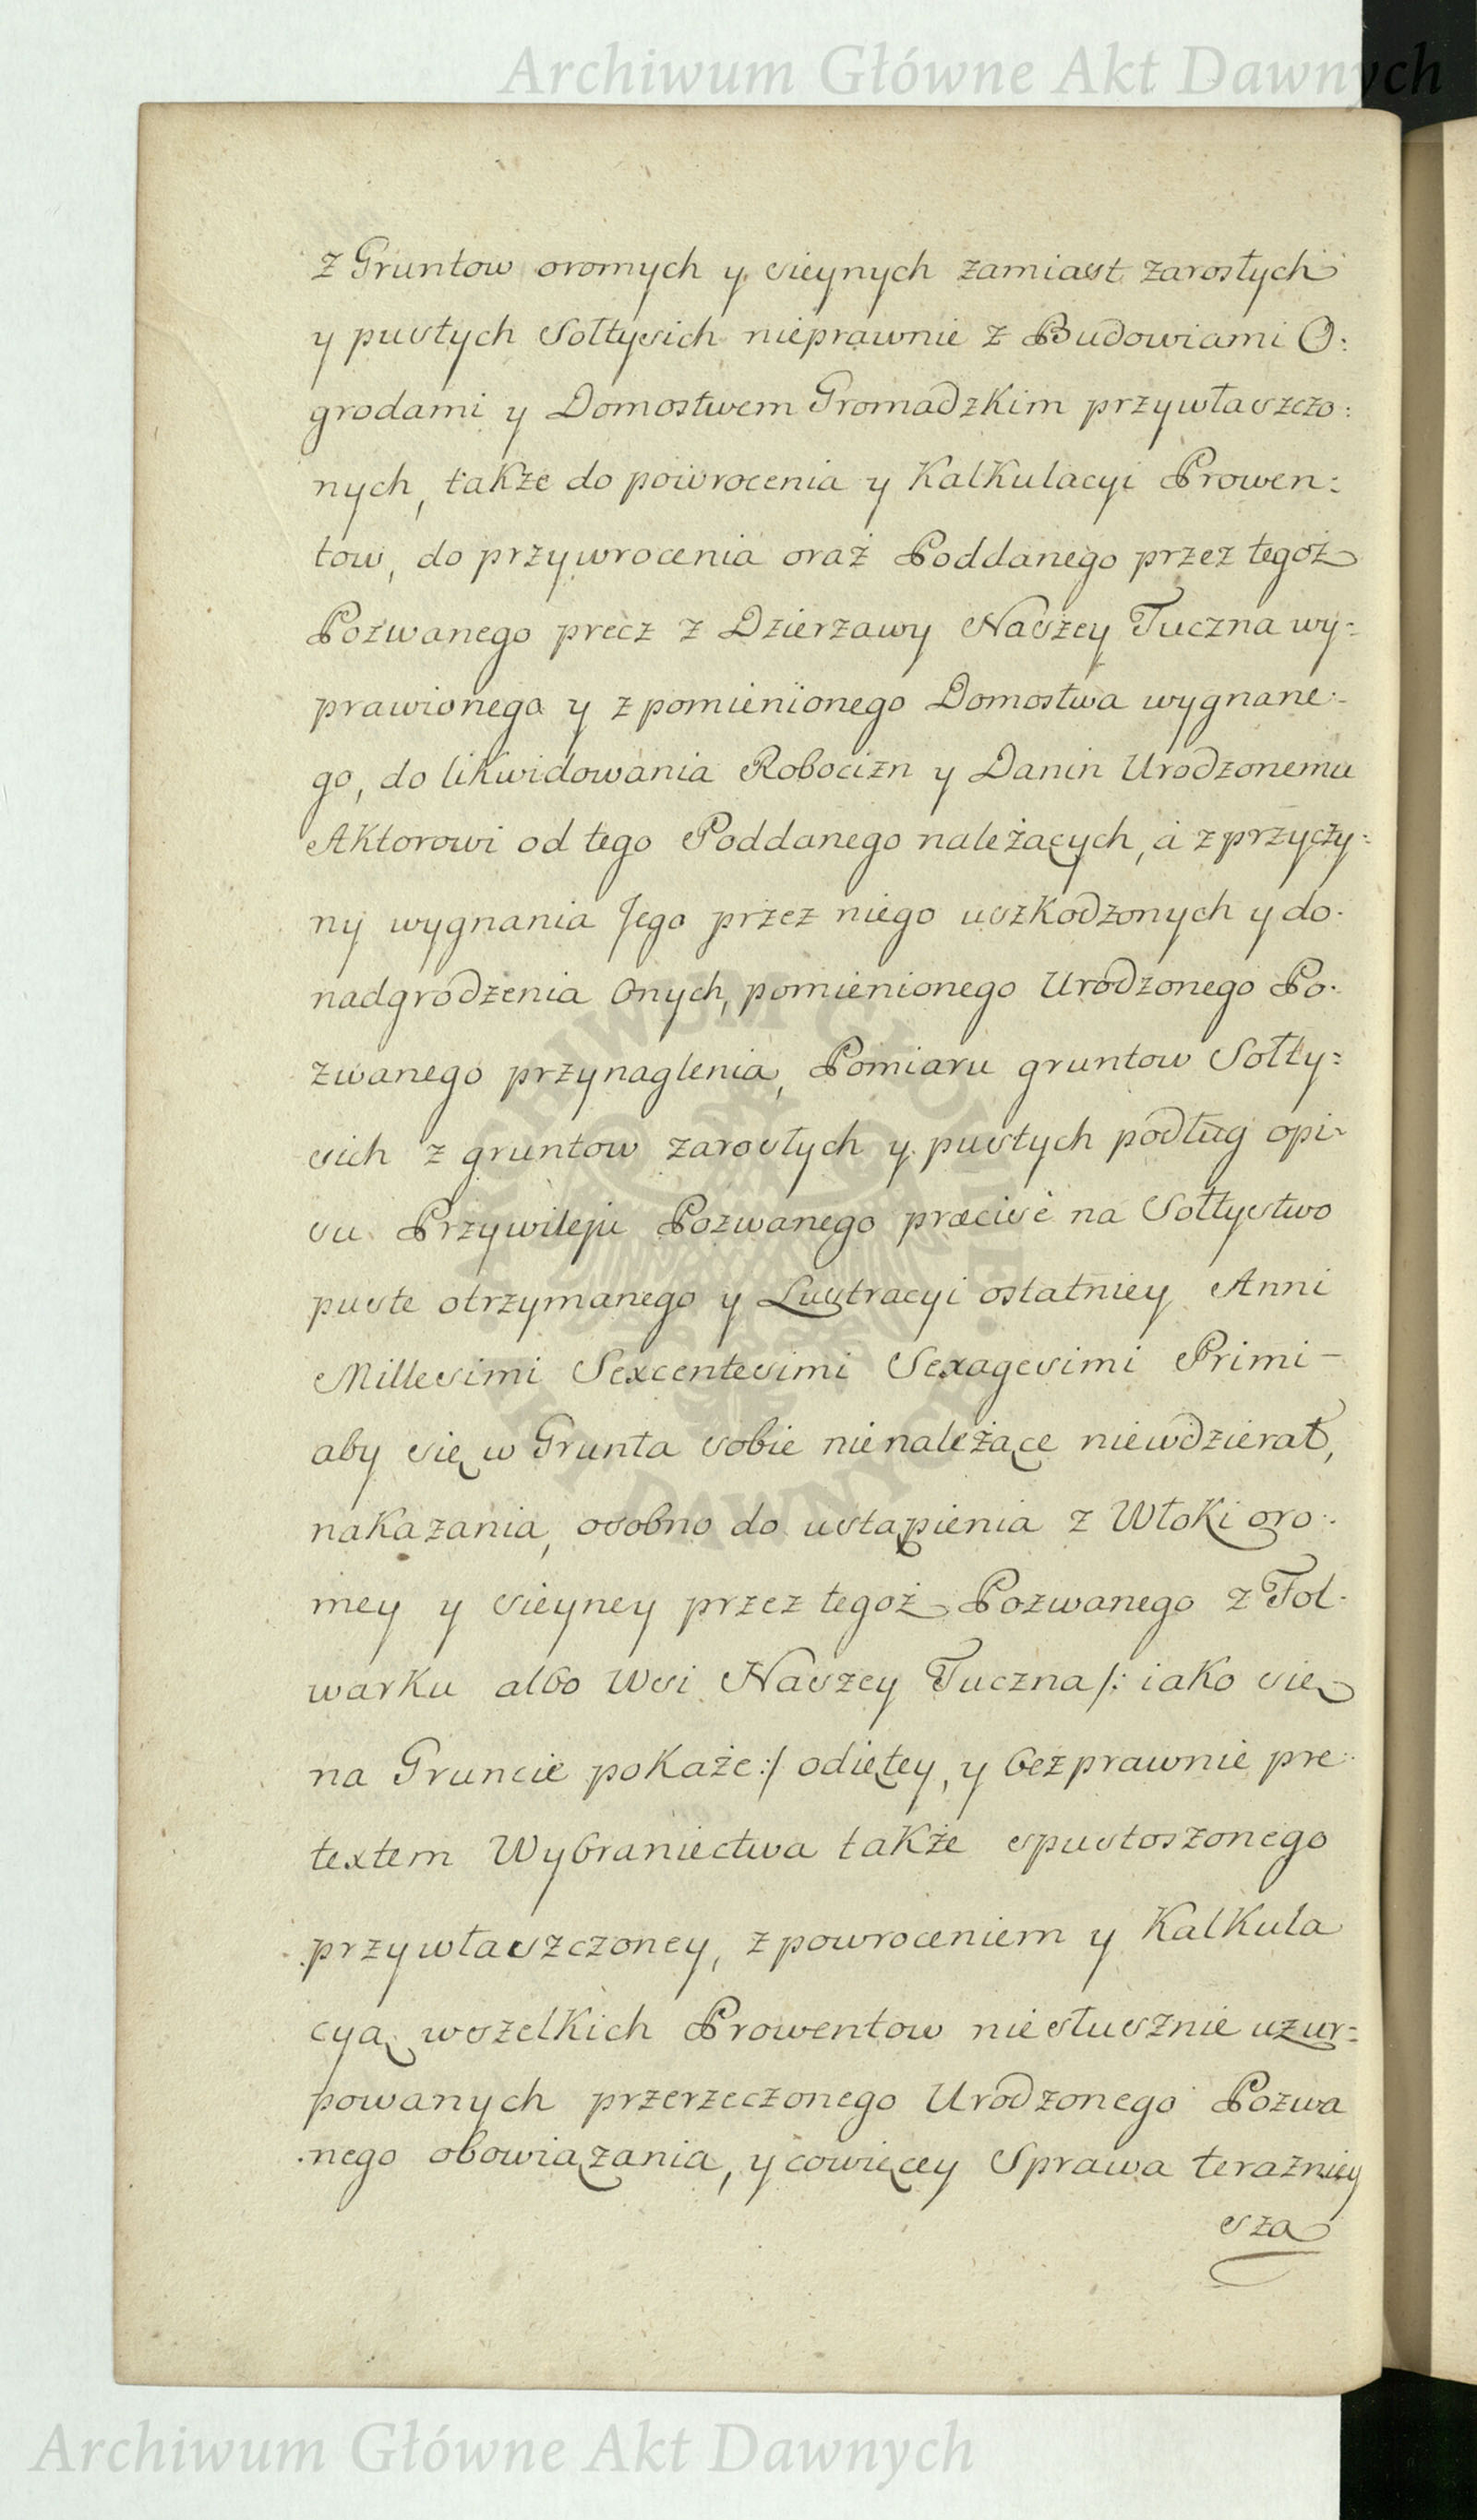 Archiwum Główne Akt Dawnych
z Gruntow oromych y sieynych zamiast zarosłych
y pustych Sołtysich nieprawnie z Budowiami O:
grodami y Domostwem Gromadzkim przywłaszczo:
nych, także do powrocenia y Kalkulacyi Prowen:
tow, do przywrocenia oraż Poddanego przez tegoż
Pozwanego precz z Dzierzawy Naszey Tuczna wy:
prawionego y z pomienionego Domostwa wygnane:
go, do likwidowania Robocizn y Danin Urodzonemu
Aktorowi od tego Poddanego należących, á z przyczy:
ny wygnania Jego przez niego uszkodzonych y do.
nadgrodzenia Onych, pomienionego Urodzonego Po.
zwanego przynaglenia, Pomiaru gruntow Sołty:
sich z gruntow zarosłych y pustych podług opi.
su Przywileju Pozwanego præcise na Sołtystwo
puste otrzymanego y Lustracyi ostatniey Anni
Millesimi Sexcentesimi Sexagesimi Primi –
aby się w Grunta sobie nienależące niewdzierał,
nakazania, osobno do ustąpienia z Włoki oro:
mey y sieyney przez tegoż Pozwanego z Fol.
warku albo Wsi Naszey Tuczna /: iako się
na Gruncie pokaże :/ odiętey, y bezprawnie pre:
textem Wybraniectwa także spustoszonego
przywłaszczoney, z powroceniem y Kalkula
cyą wszelkich Prowentow niesłusznie uzur:
powanych przerzeczonego Urodzonego Pozwa
nego obowiązania, y cowięcey Sprawa teraźniey
sza
ARCHIWUM GŁÓWNE
AKT DAWNYCH
Archiwum Główne Akt Dawnych